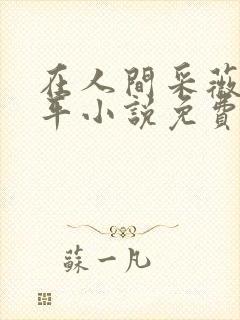 在人間采薇
年小說免費
蘇一凡